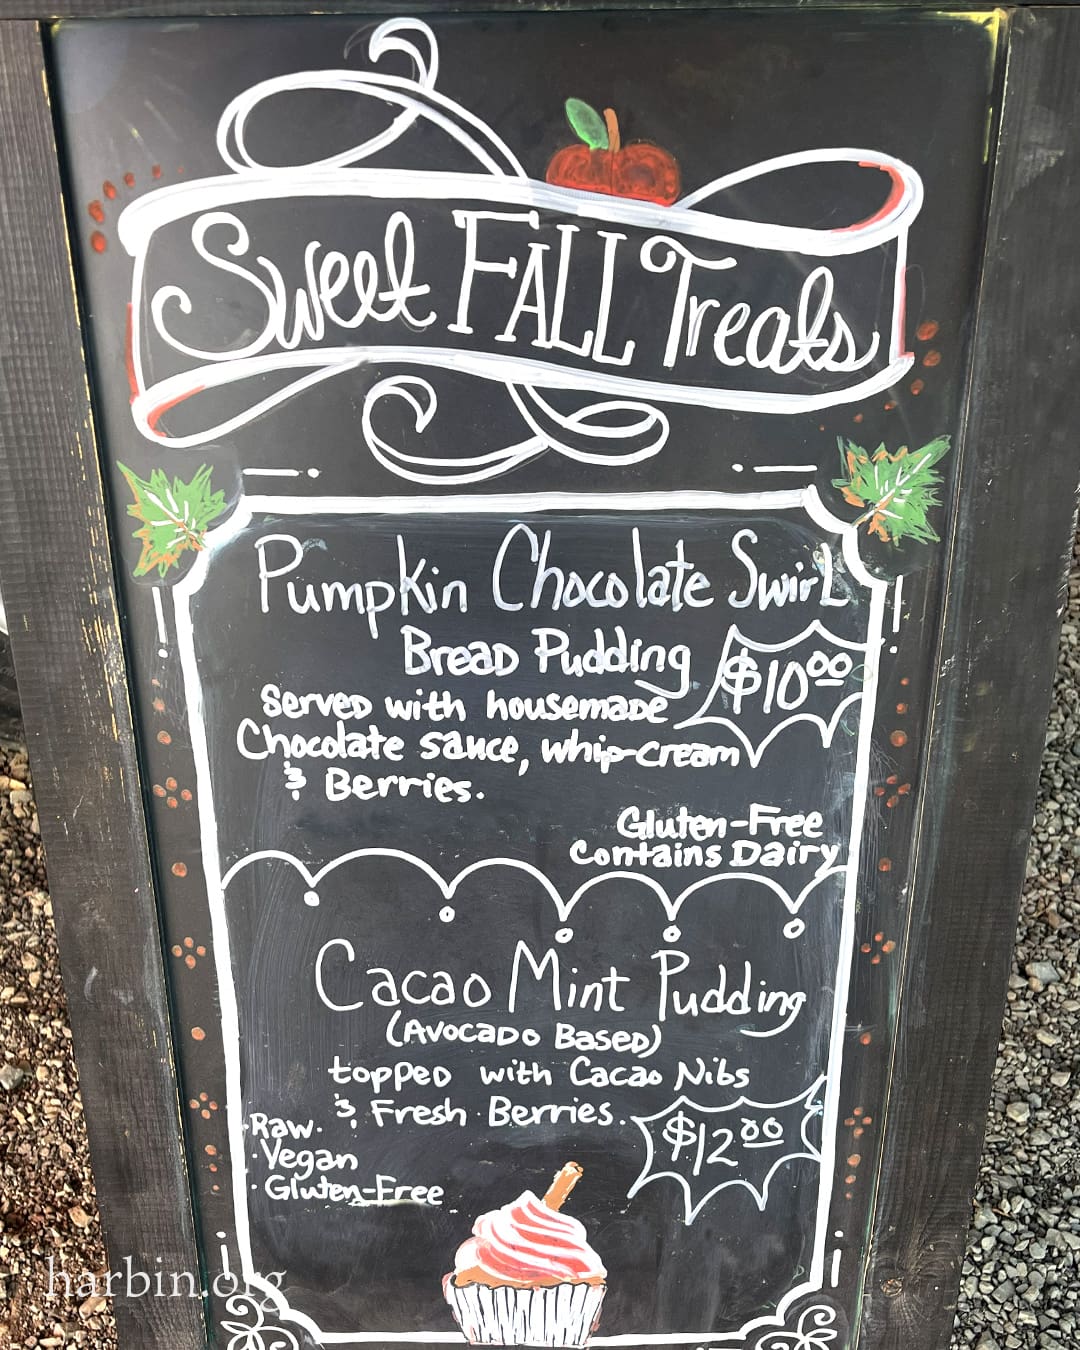 Sweet FALL Treats
Pumpkin Chocolate Swirl
Bread Pudding
$10.00
served with housemade
Chocolate sauce, whip-cream
& Berries.
Gluten-Free
Contains Dairy
Cacao Mint Pudding
(Avocado Based)
topped with Cacao Nibs
& Fresh Berries.
$12.00
· Raw.
· Vegan
· Gluten-Free
harbin.org